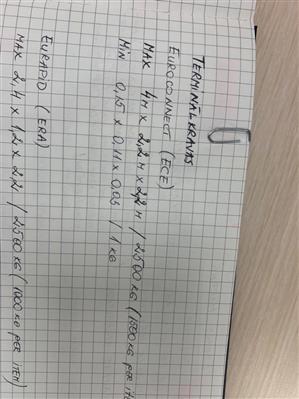 TERMINĀLKRAVAS
EUROCONNECT (ECE)
MAX 4M x 2,2M x 2,2M / 2500 KG (1500 KG PER
MIN 0,15 x 0,11 x 0,03 / 1 KG
EURAPID (ERA)
MAX 2,4 x 1,2 x 2,2 / 2500 KG (1000 KG PER ITEM)